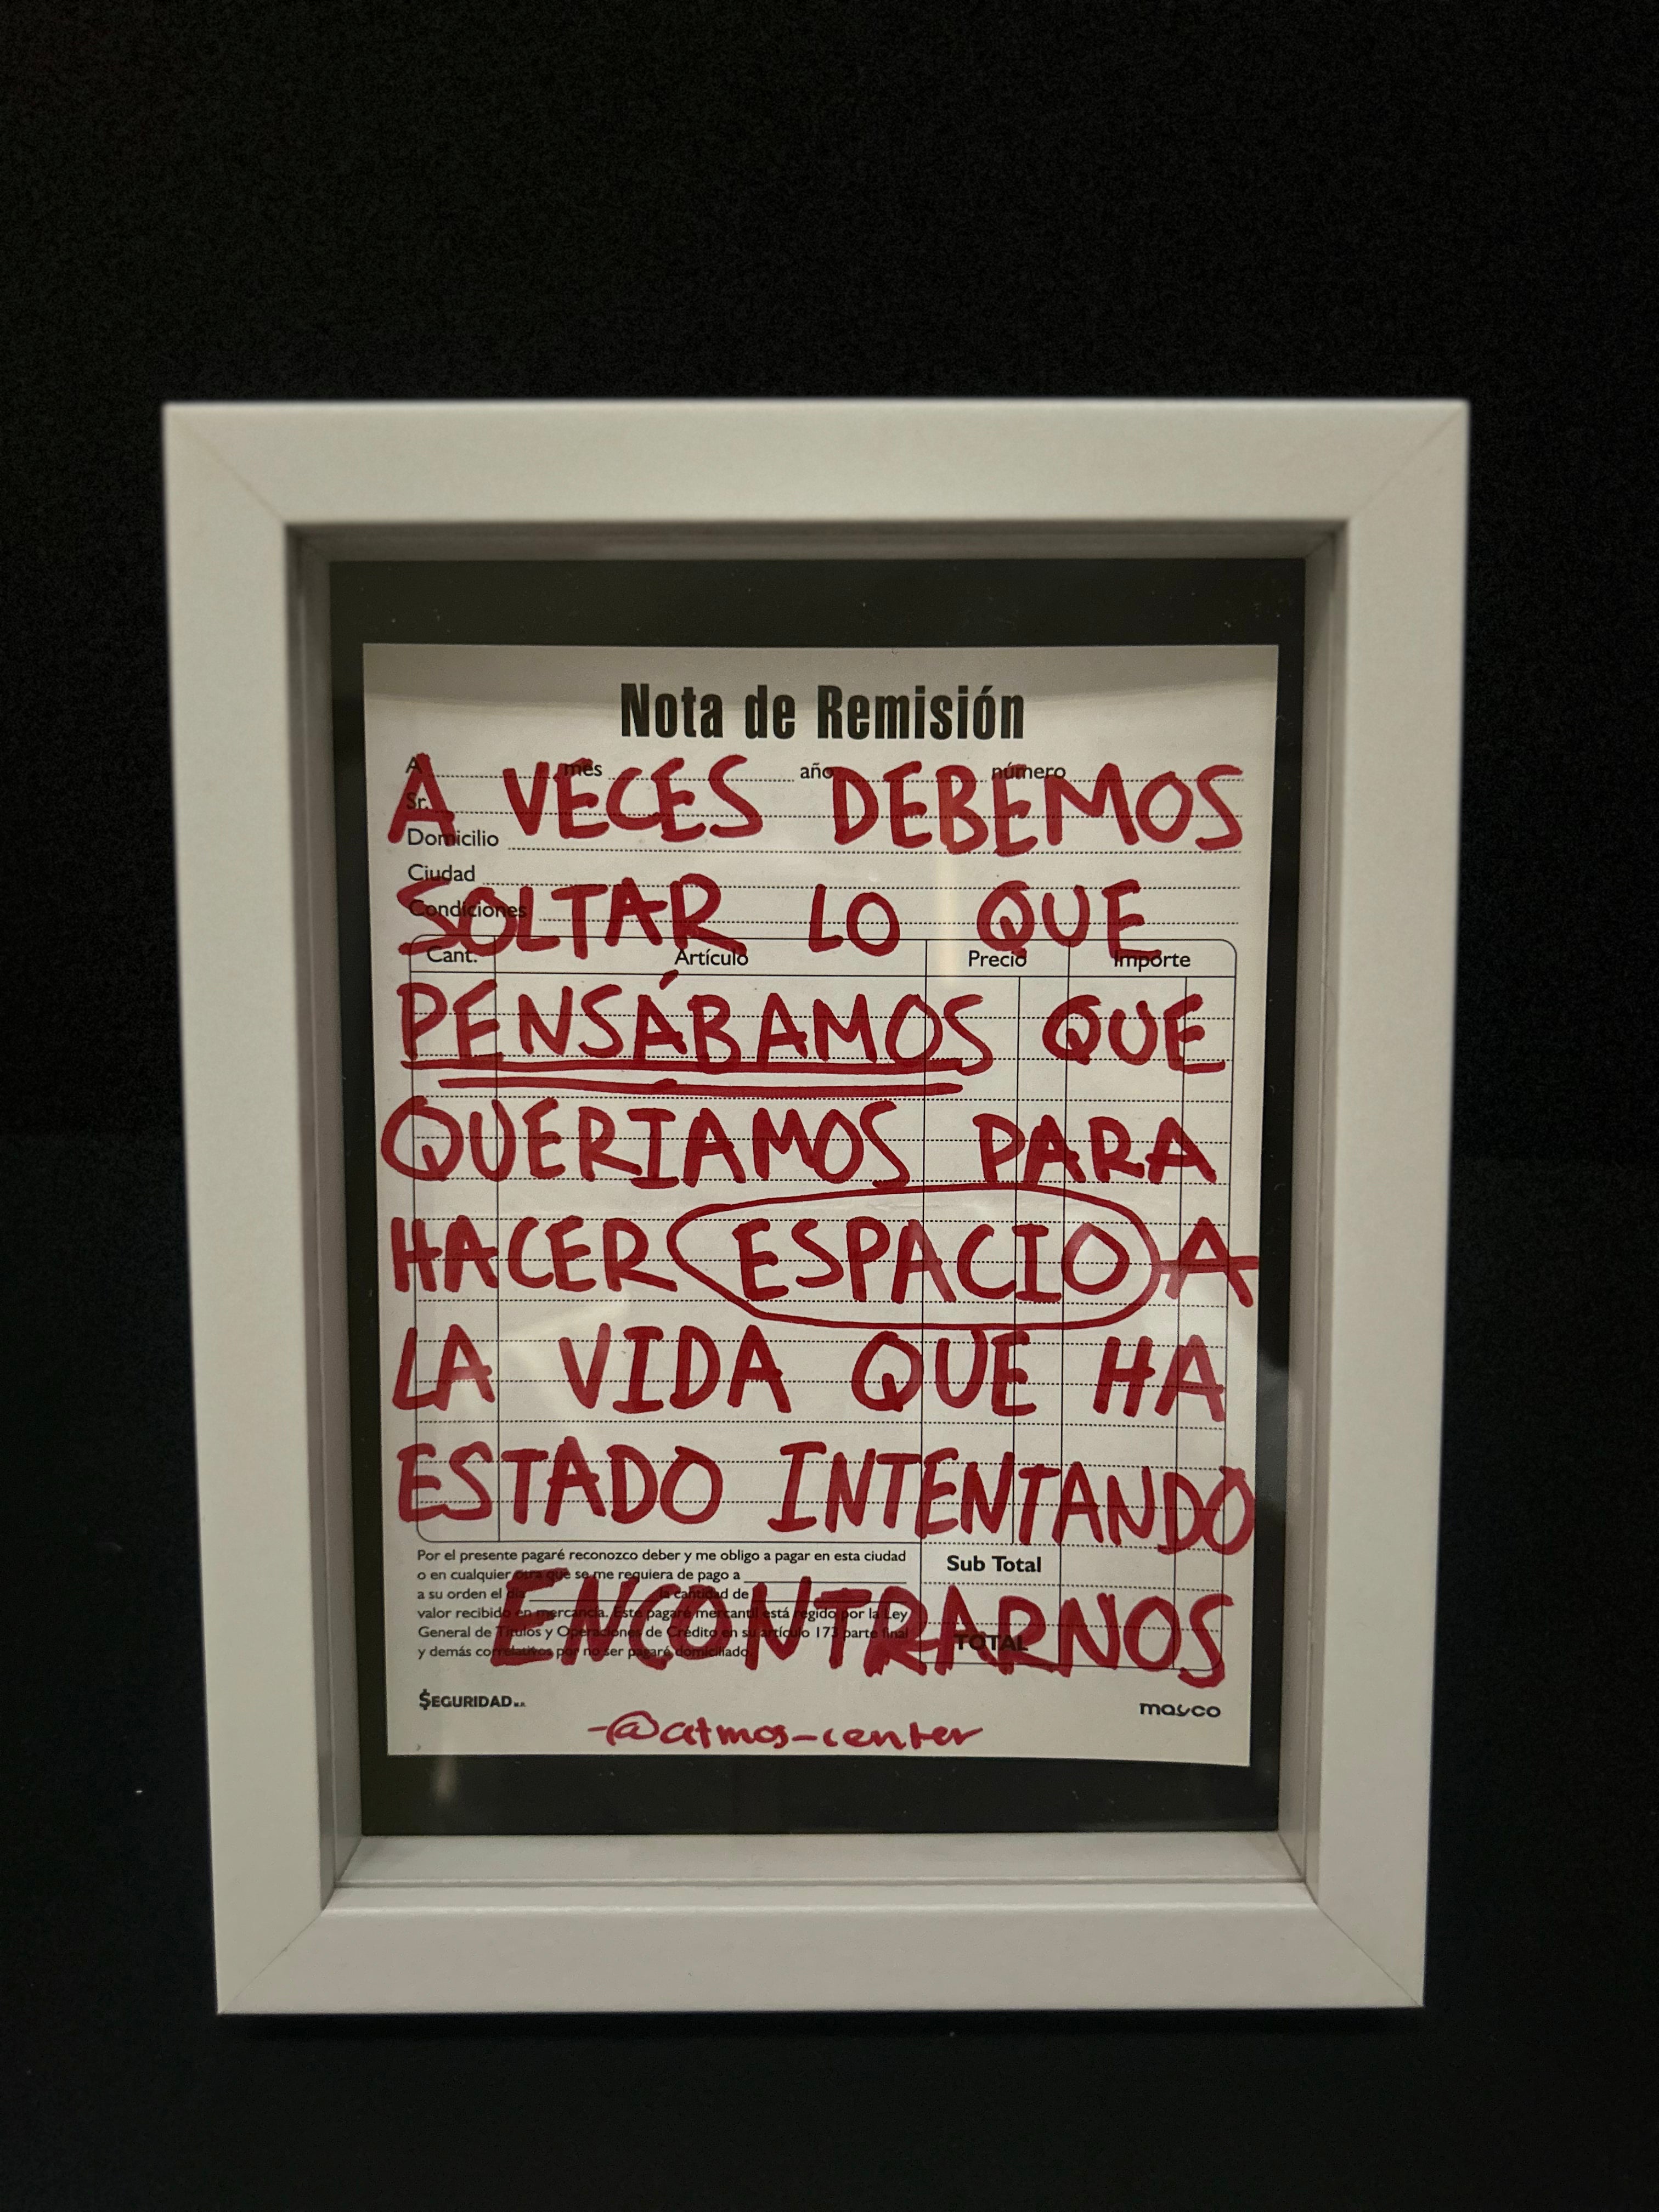 Nota de Remisión
A mes año número
Sr.
Domicilio
Ciudad
Condiciones
A VECES DEBEMOS
SOLTAR LO QUE
Cant. Artículo Precio Importe
PENSÁBAMOS QUE
QUERIAMOS PARA
HACER ESPACIO A
LA VIDA QUE HA
ESTADO INTENTANDO
ENCONTRARNOS
Por el presente pagaré reconozco deber y me obligo a pagar en esta ciudad
o en cualquier otra que se me requiera de pago a
a su orden el día la cantidad de
valor recibido en mercancía. Este pagaré mercantil está regido por la Ley
General de Títulos y Operaciones de Crédito en su artículo 173 parte final
y demás correlativos por no ser pagaré domiciliado.
Sub Total
TOTAL
$EGURIDAD M.R.
masco
-@atmos_center